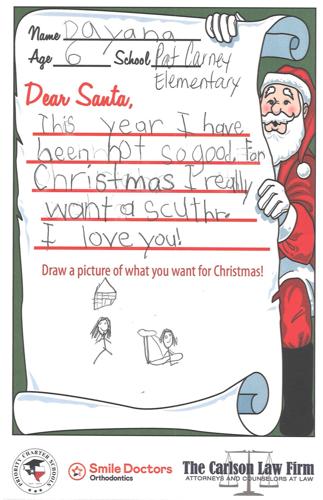 Name Dayana
Age 6 School Pat Carney
Elementary
Dear Santa,
This year I have
been not so good. For
Christmas I really
want a scuthr.
I love you!
Draw a picture of what you want for Christmas!
PRIORITY CHARTER SCHOOLS
Smile Doctors
Orthodontics
The Carlson Law Firm
ATTORNEYS AND COUNSELORS AT LAW